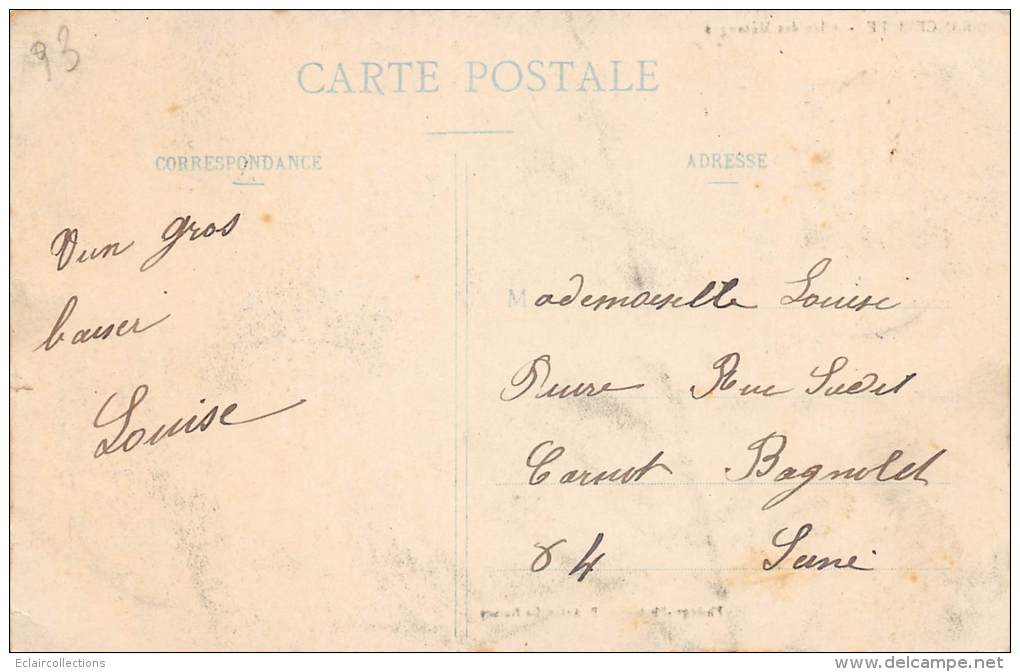 93
CARTE POSTALE
CORRESPONDANCE
ADRESSE
Vun gros
baiser
Louise
Mademoiselle Louise
Rue
Carnot Bagnolet
84 Seine
Eclaircollections
www.delcampe.net